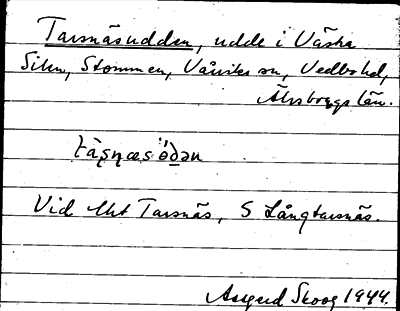 Tarsnäsudden, udde i Västra
Silen, Stommen, Vårviks sn, Vedbo hd,
Älvsborgs län.
tàʂɳæsö̀dən
Vid lht Tarsnäs, S Långtarsnäs.
Skoog 1944.